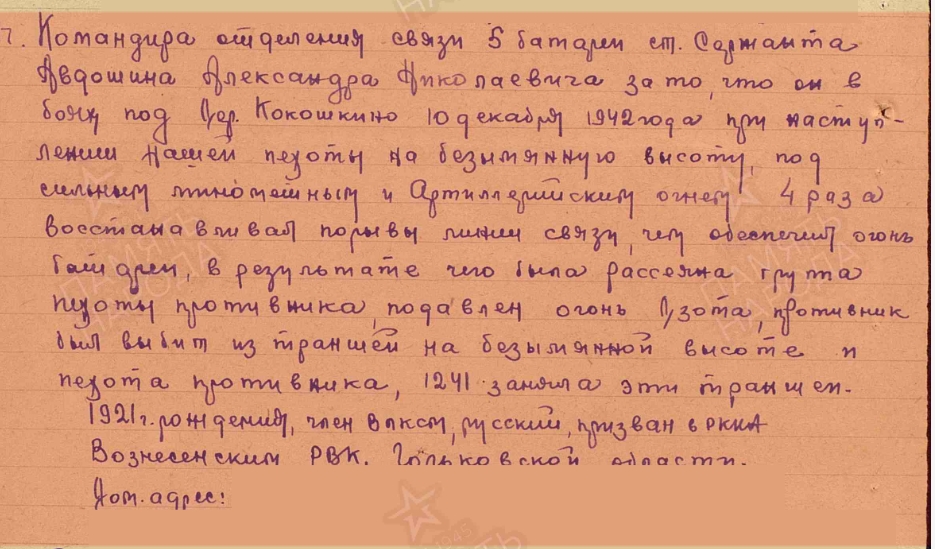 7. Командира отделения связи 5 батареи ст. Сержанта
Авдошина Александра Николаевича за то, что он в
боях под Дер. Кокошкино 10 декабря 1942 года при наступ-
лении нашей пехоты на безымянную высоту, под
сильным миномётным и Артиллерийским огнем 4 раза
восстанавливал порывы линии связи, чем обеспечил огонь
батареи, в результате чего была рассеяна группа
пехоты противника, подавлен огонь Дзота, противник
был выбит из траншей на безымянной высоте и
пехота противника, 1241 заняла эти траншеи.
1921 г. рождения, член ВЛКСМ, русский, призван в РККА
Вознесенским РВК. Горьковской области.
Дом. адрес:
ПАМЯТЬ НАРОДА